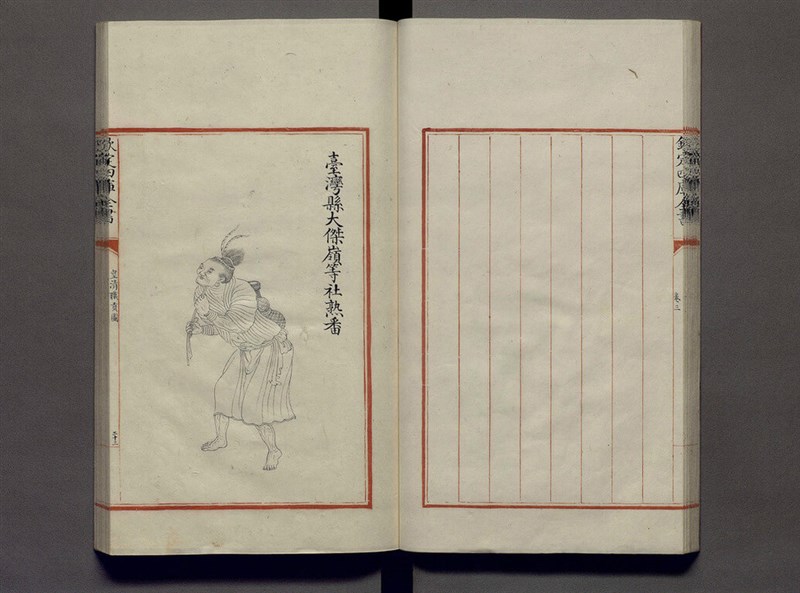 欽定四庫全書
卷三
臺灣縣大傑嶺等社熟番
欽定四庫全書
皇清職貢圖